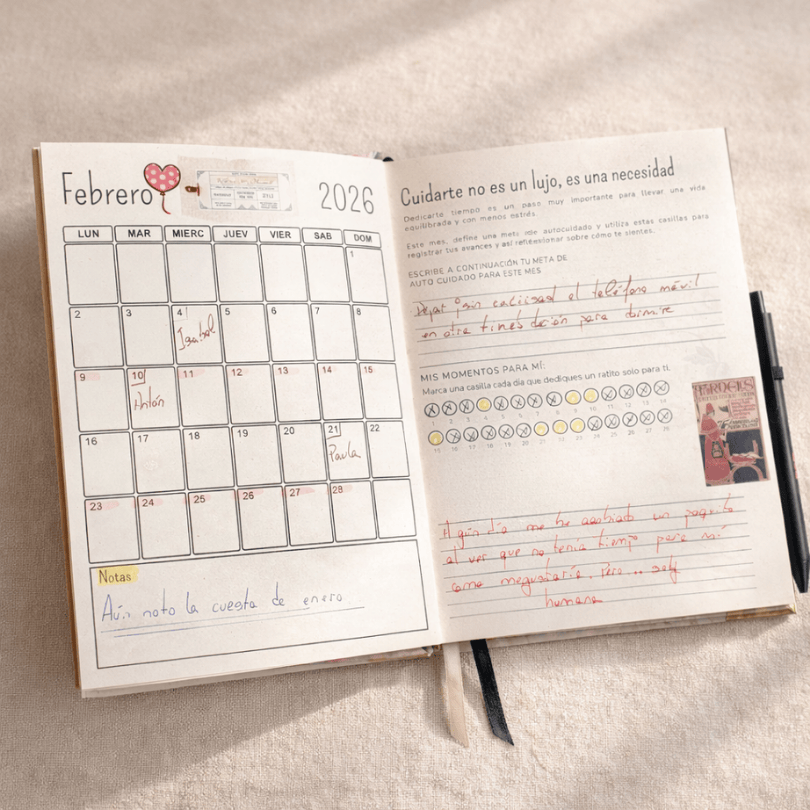 Febrero
2026
LUN MAR MIERC JUEV VIER SAB DOM
1
2 3 4 5 6 7 8
Isabel
9 10 11 12 13 14 15
Antón
16 17 18 19 20 21 22
Paula
23 24 25 26 27 28
Notas
Aún noto la cuesta de enero
Cuidarte no es un lujo, es una necesidad
Dedicarte tiempo es un paso muy importante para llevar una vida
equilibrada y con menos estrés.
Este mes, define una meta de autocuidado y utiliza estas casillas para
registrar tus avances y así reflexionar sobre cómo te sientes.
ESCRIBE A CONTINUACIÓN TU META DE
AUTO CUIDADO PARA ESTE MES
Dejar el teléfono móvil
en para dormir
MIS MOMENTOS PARA MÍ:
Marca una casilla cada día que dediques un ratito solo para ti.
1 2 3 4 5 6 7 8 9 10 11 12 13 14
15 16 17 18 19 20 21 22 23 24 25 26 27 28
Algún día me he agobiado un poquito
al ver que no tenía tiempo para mí
como me gustaría. Pero... soy
humana